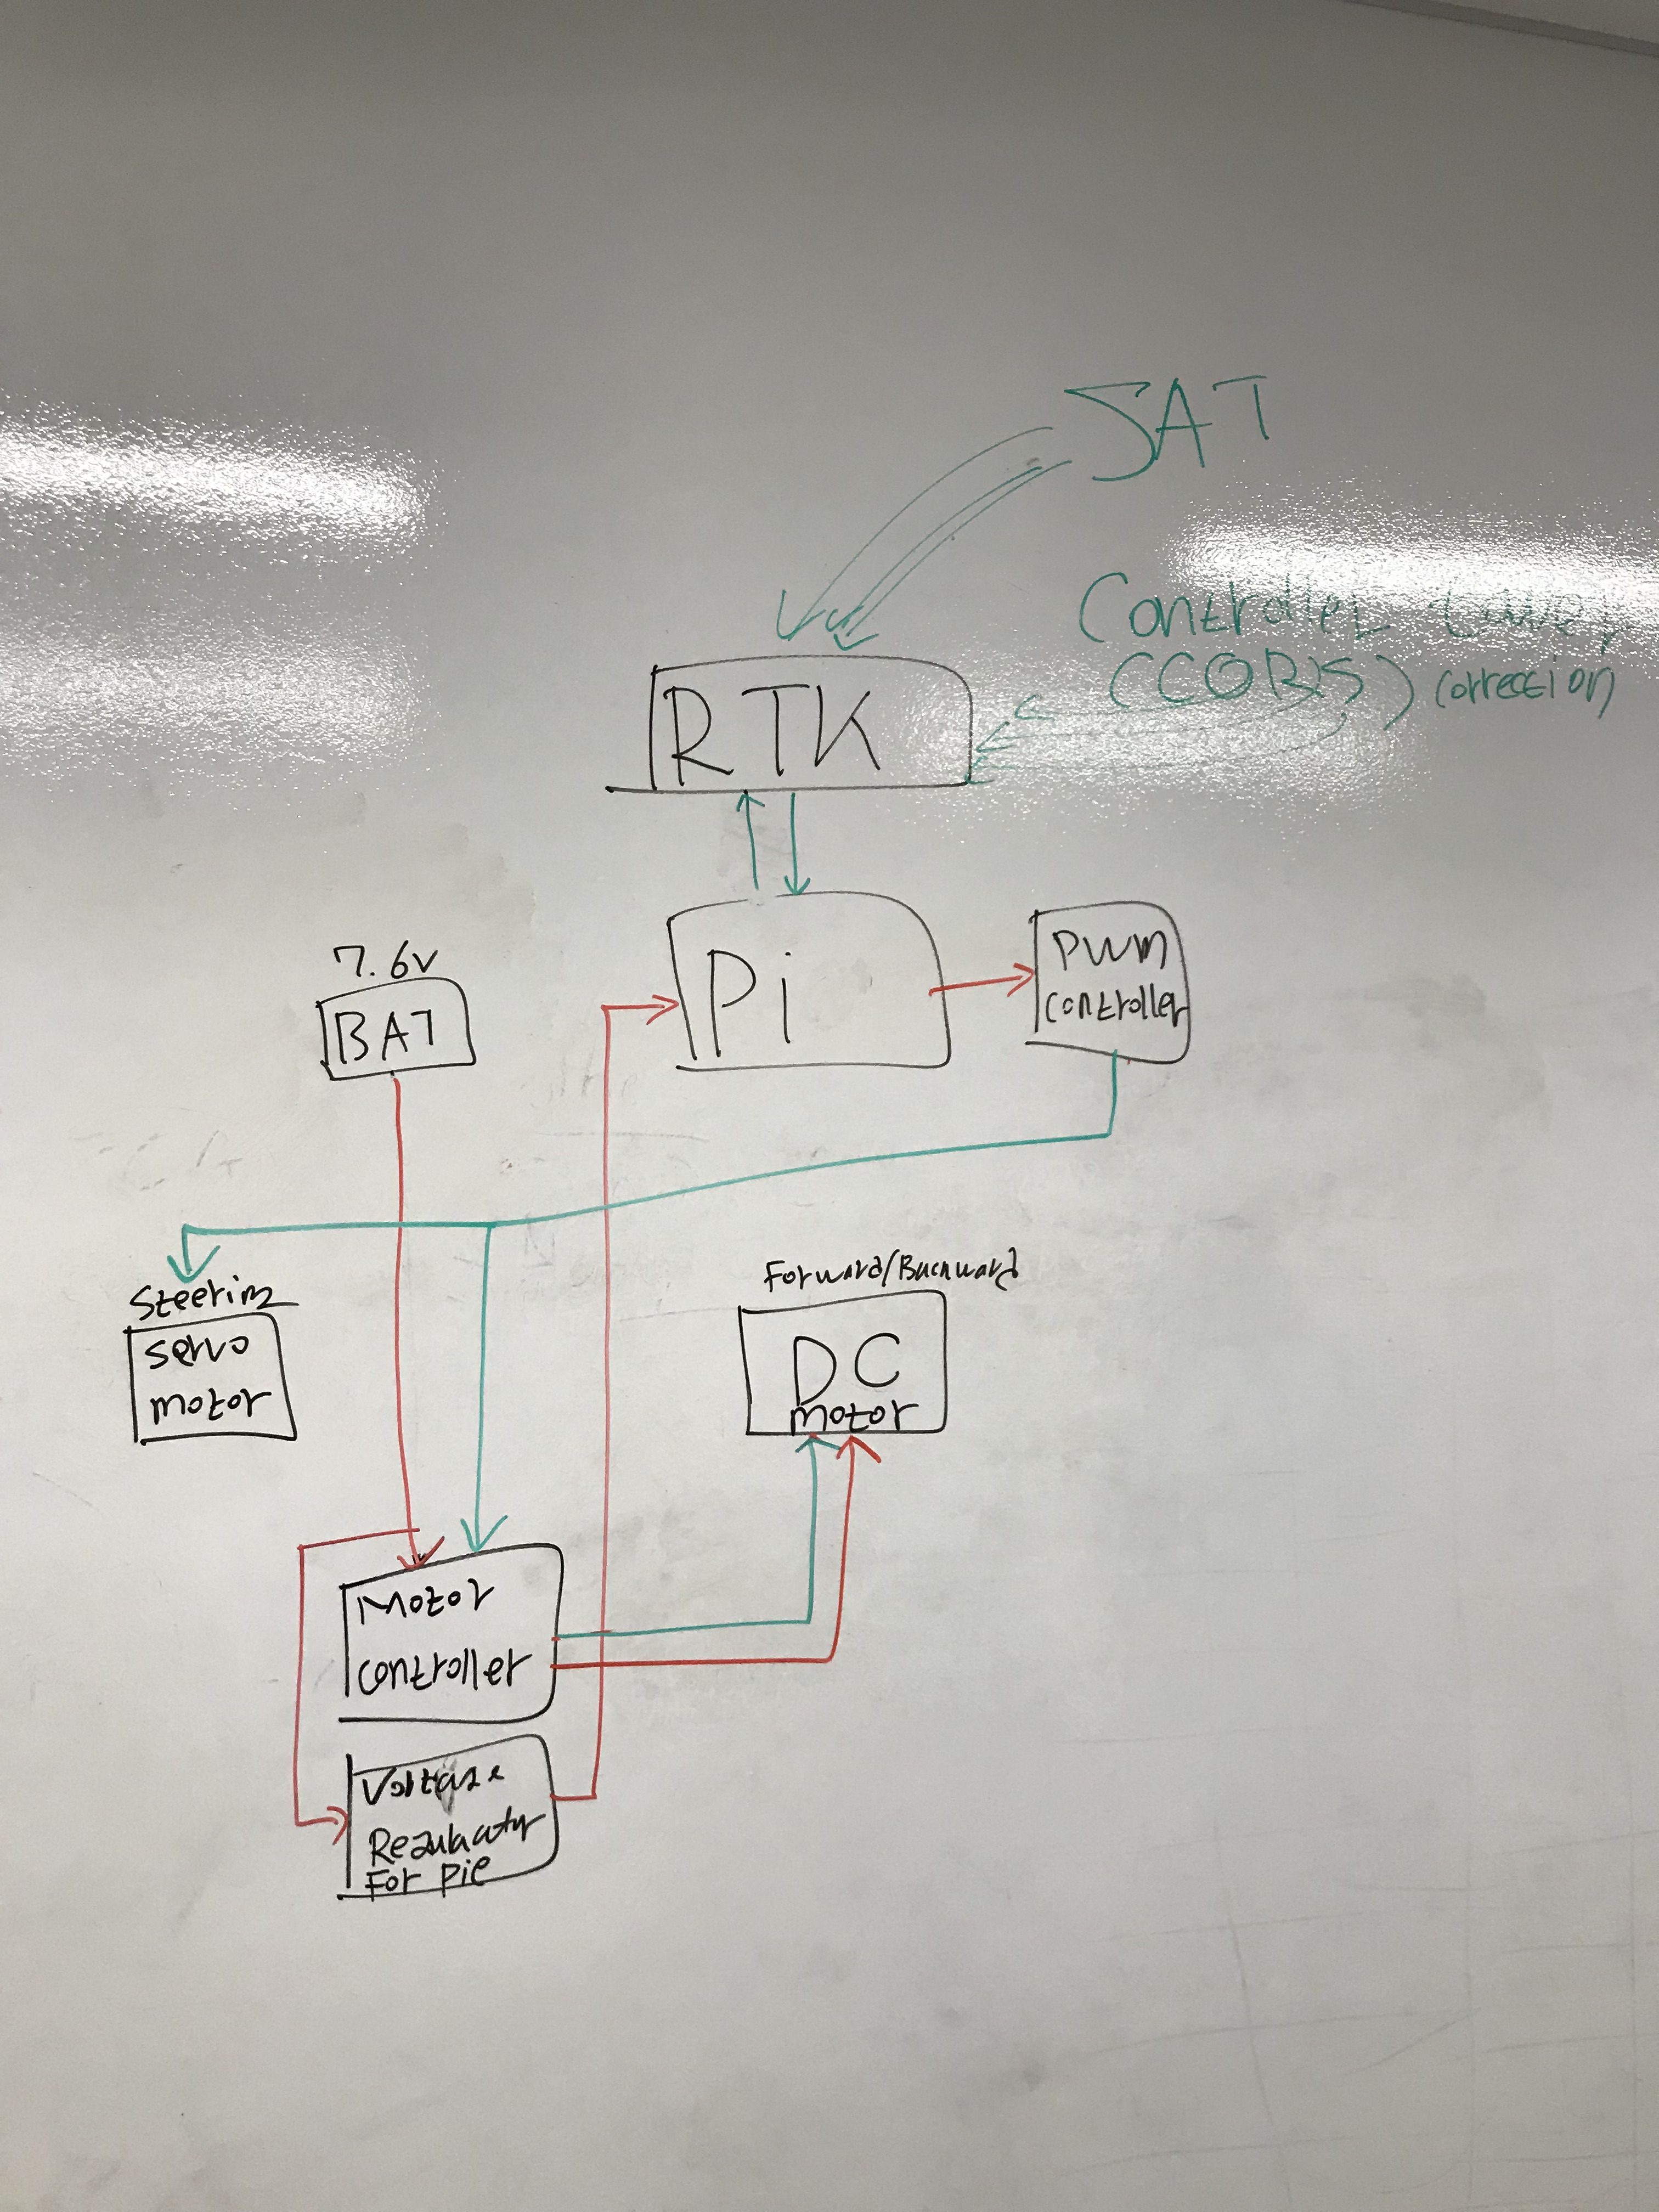 SAT
Controller tower
(CORS) correction
RTK
7.6V
BAT
Pi
PWM
controller
Steering
servo
motor
Forward/Backward
DC
motor
Motor
controller
Voltage
For pie